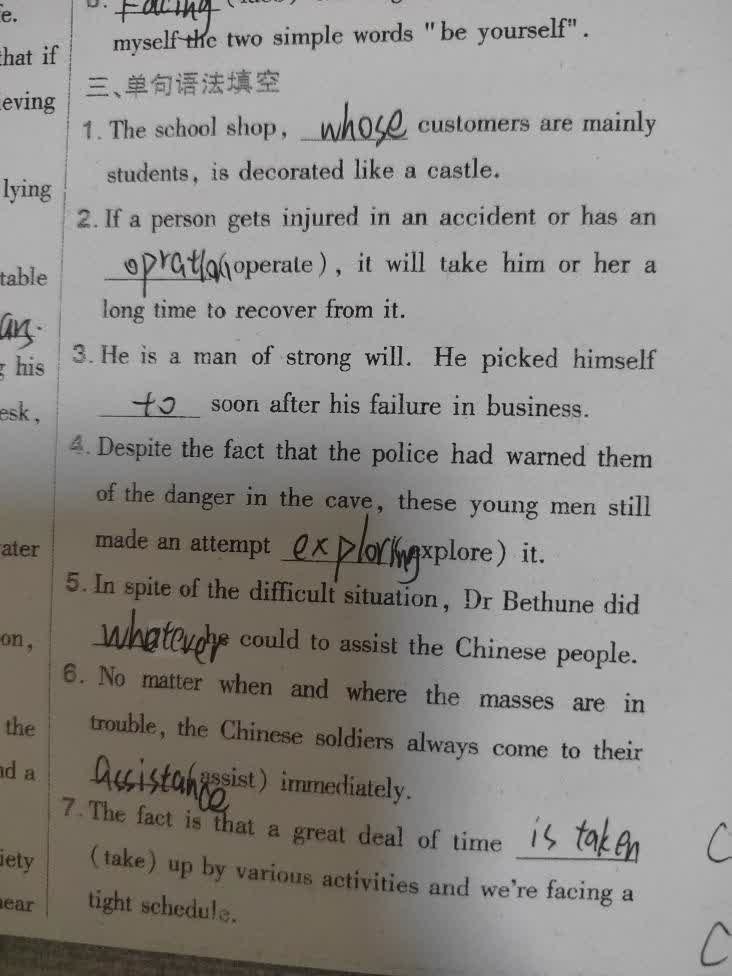 e.
that if
eving
lying
table
g his
esk,
ater
on,
the
nd a
iety
near
Facing
myself the two simple words "be yourself".
三、单句语法填空
1. The school shop, whose customers are mainly
students, is decorated like a castle.
2. If a person gets injured in an accident or has an
opration (operate), it will take him or her a
long time to recover from it.
3. He is a man of strong will. He picked himself
to soon after his failure in business.
4. Despite the fact that the police had warned them
of the danger in the cave, these young men still
made an attempt exploring (explore) it.
5. In spite of the difficult situation, Dr Bethune did
whatever he could to assist the Chinese people.
6. No matter when and where the masses are in
trouble, the Chinese soldiers always come to their
assistance (assist) immediately.
7. The fact is that a great deal of time is taken
(take) up by various activities and we're facing a
tight schedule.